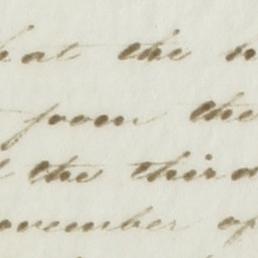 that the
from the
the third
November